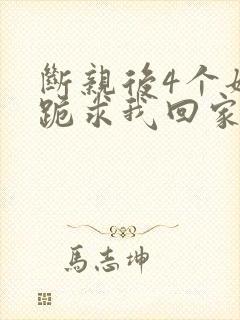 斷親後4个
跪求我回家
馬志坤